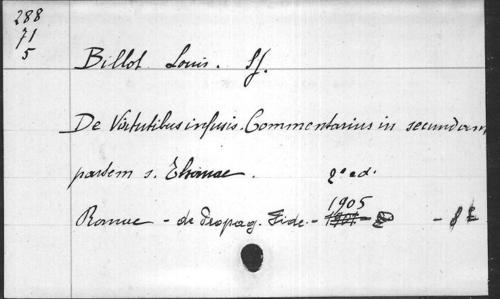 288
71
5
Billot Louis. Sj.
De Virtutibus infusis. Commentarius in secundam
partem s. Thomae. 2ª ed.
1905
Romae - de Propag. Fide - - 8º